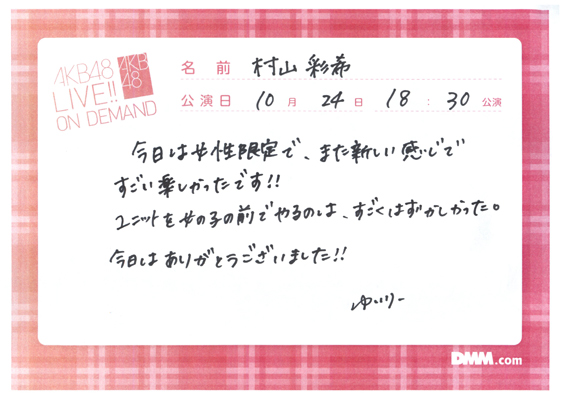 AKB48
LIVE!!
ON DEMAND
AKB
48
名前 村山彩希
公演日 10月 24日 18:30公演
今日は女性限定で、また新しい感じで
すごい楽しかったです!!
ユニットを女の子の前でやるのは、すごくはずかしかった。
今日はありがとうございました!!
ゆいりー
DMM.com